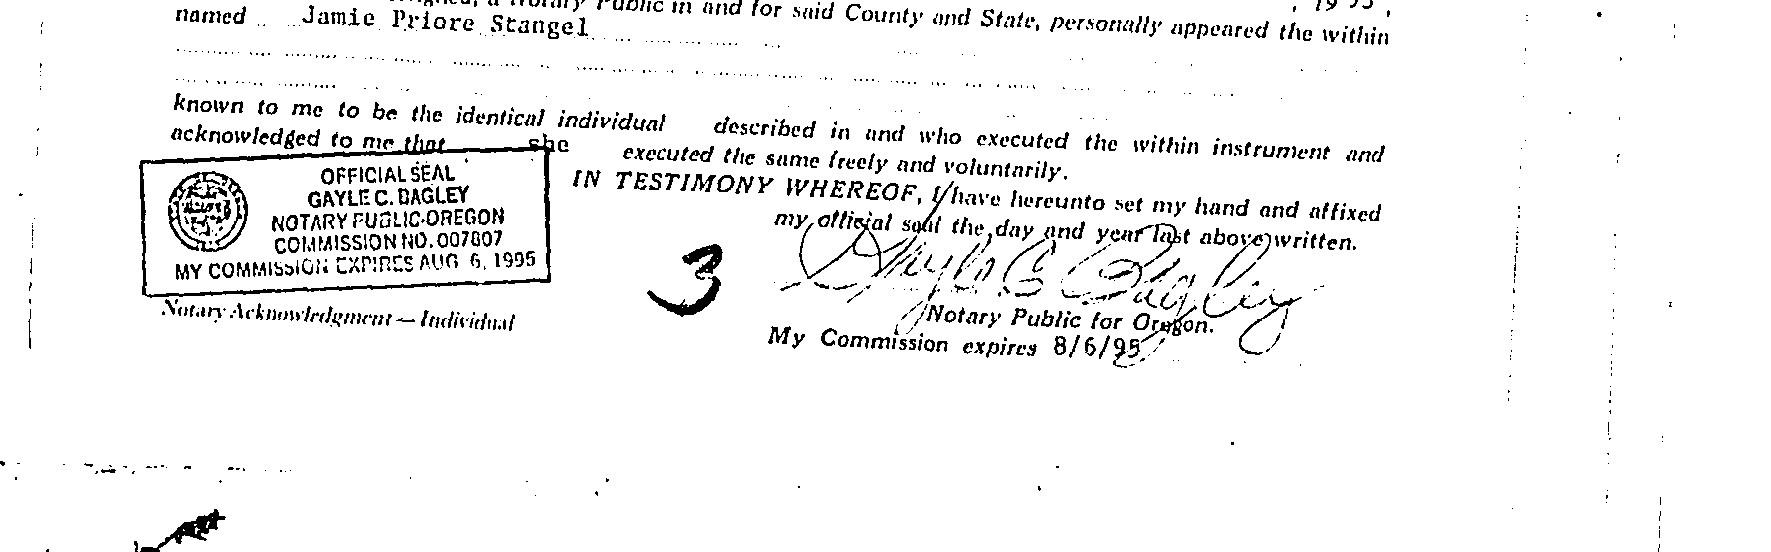 a Notary Public in and for said County and State, personally appeared the within
named Jamie Priore Stangel
known to me to be the identical individual described in and who executed the within instrument and
acknowledged to me that she executed the same freely and voluntarily.
IN TESTIMONY WHEREOF, I have hereunto set my hand and affixed
my official seal the day and year last above written.
OFFICIAL SEAL
GAYLE C. BAGLEY
NOTARY PUBLIC-OREGON
COMMISSION NO. 007807
MY COMMISSION EXPIRES AUG 6, 1995
3
Gayle C Bagley
Notary Public for Oregon.
My Commission expires 8/6/95
Notary Acknowledgment — Individual